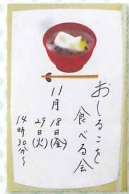 おしるこを
食べる会
11月18日(金)
29日(火)
14時30分〜